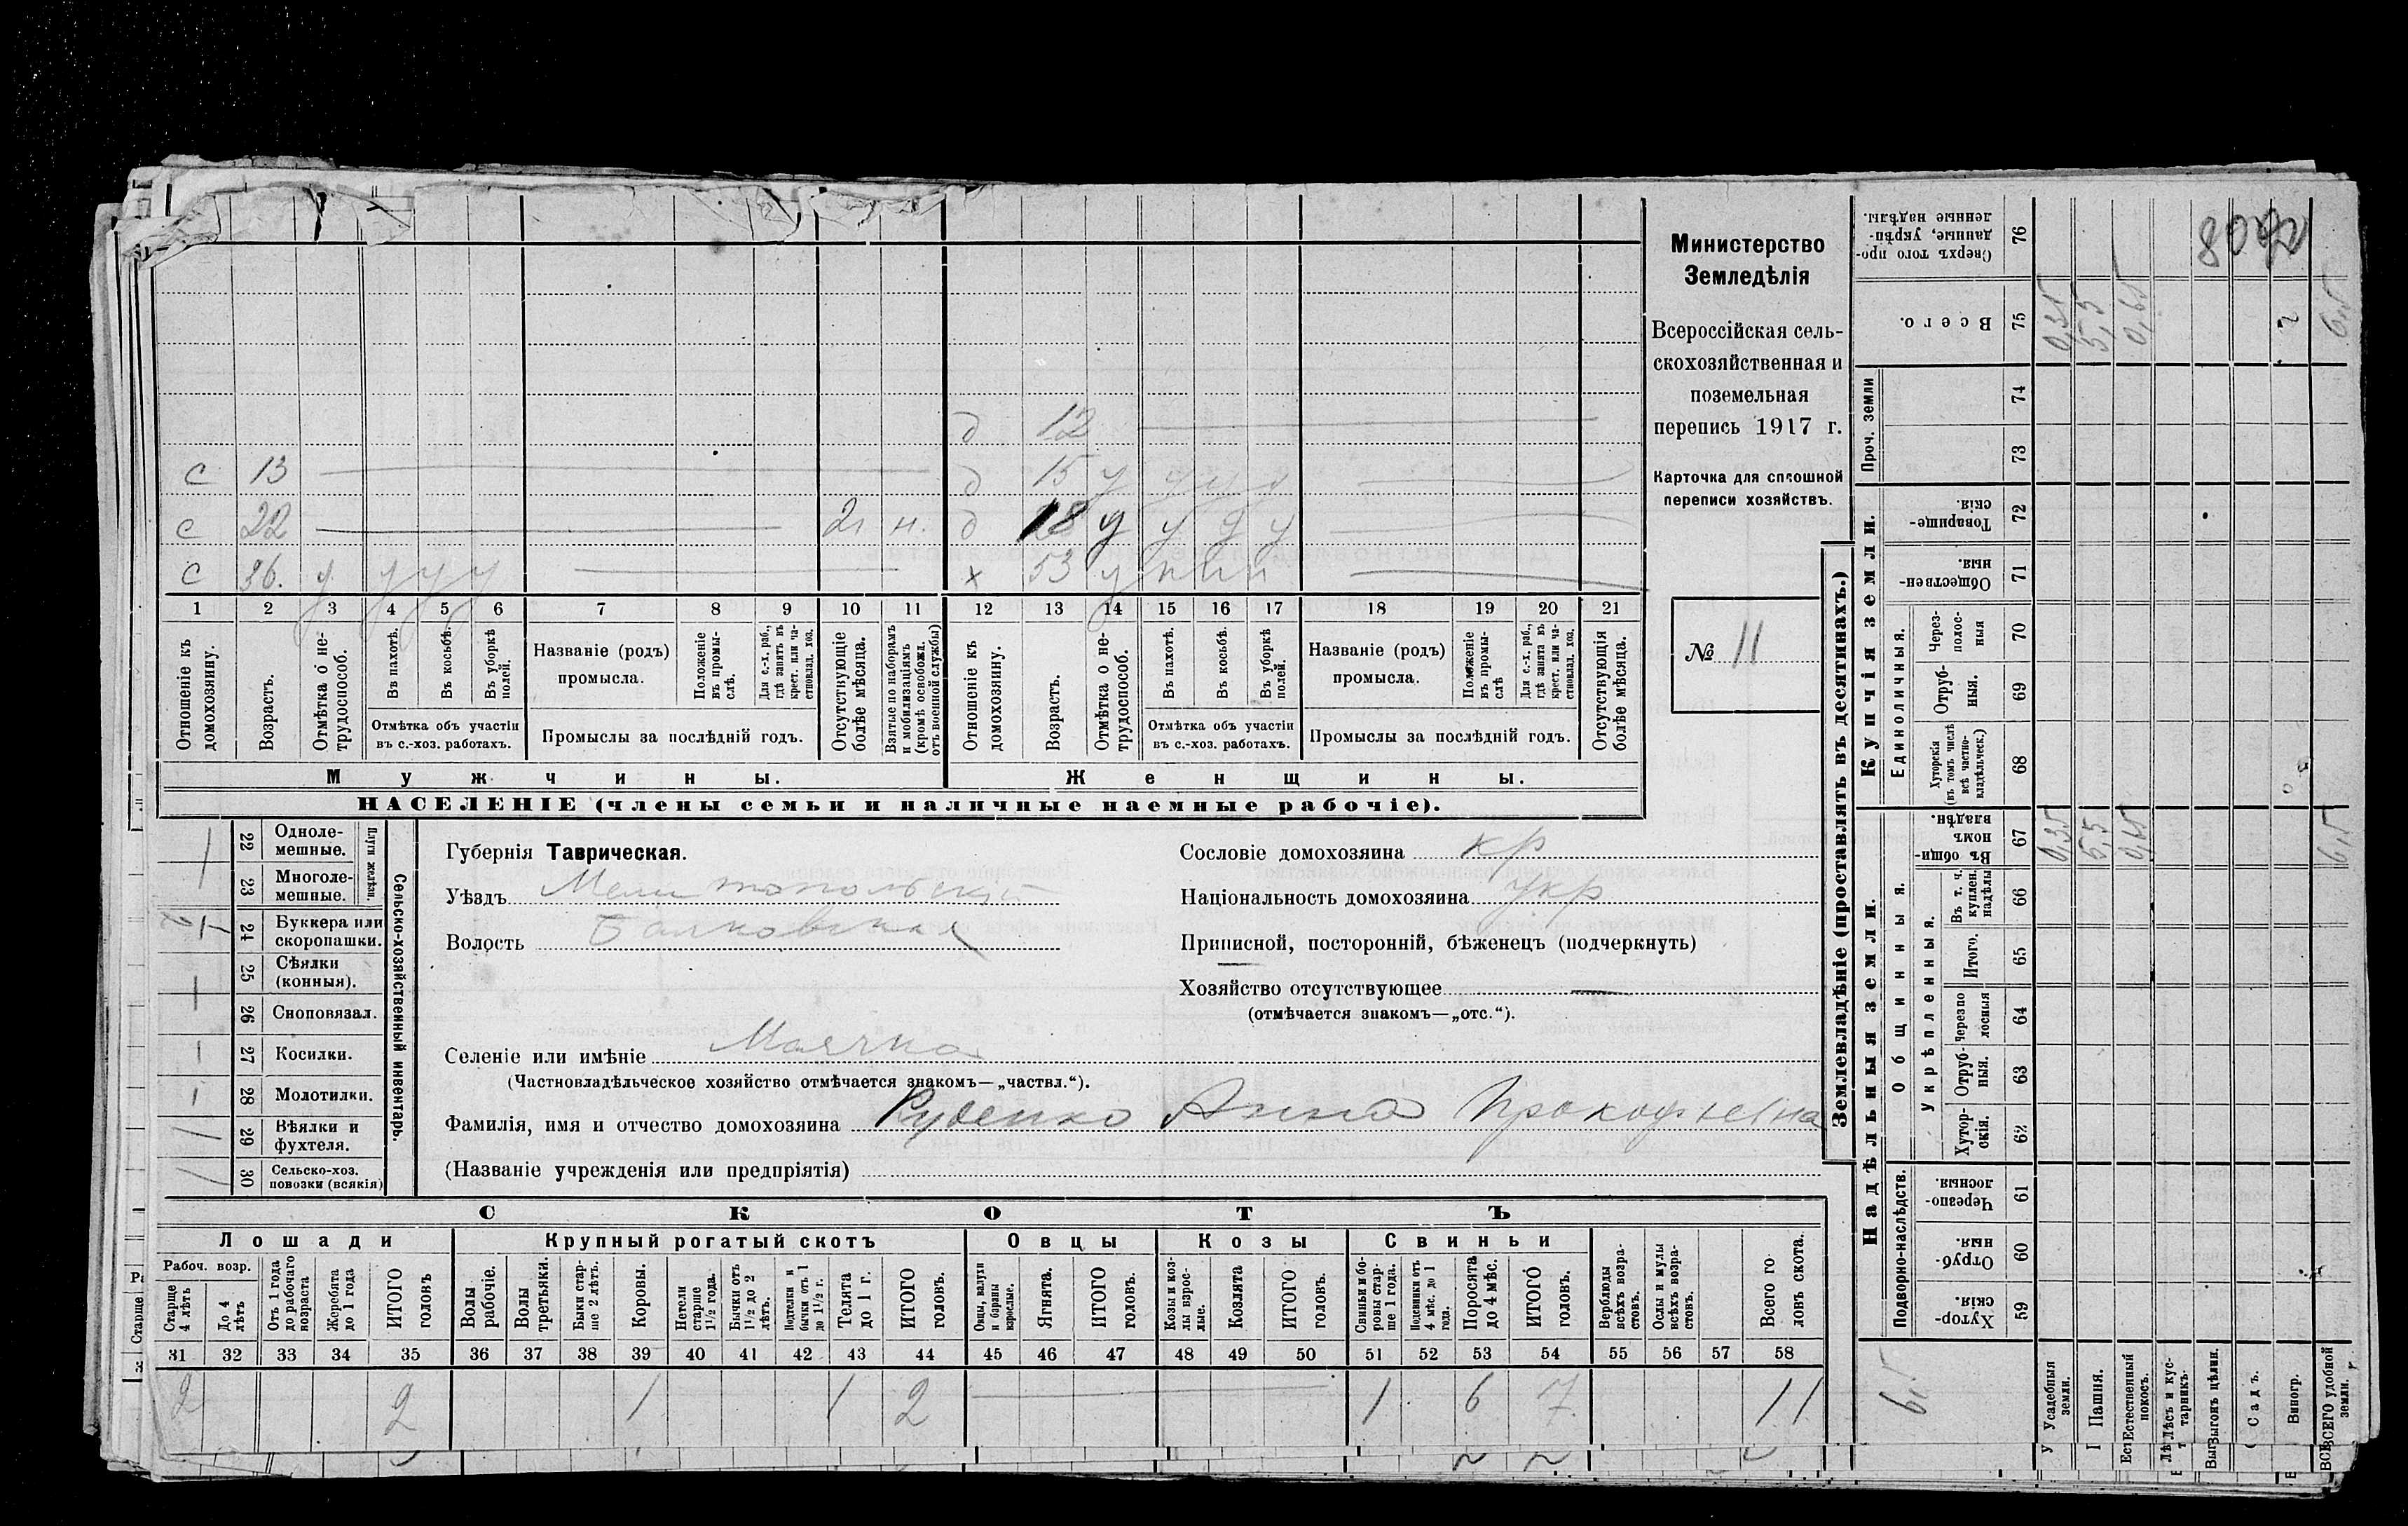 д 12
с 13 д 15 у у у у
с 22 21 н. д 18 у у у у
с 36. у у у у х 53 у н н н
1 2 3 4 5 6 7 8 9 10 11 12 13 14 15 16 17 18 19 20 21
Отношеніе къ домохозяину.
Возрастъ.
Отмѣтка о не-трудоспособ.
Въ пахотѣ.
Въ косьбѣ.
Въ уборкѣ полей.
Отмѣтка объ участіи
въ с.-хоз. работахъ.
Названіе (родъ)
промысла.
Положеніе въ промы-слѣ.
Для с.-х. раб., гдѣ занятъ въ крест. или ча-стновлад. хоз.
Промыслы за послѣдній годъ.
Отсутствующіе болѣе мѣсяца.
Взятые по наборамъ и мобилизаціямъ (кромѣ освобожд. отъ военной службы)
Отношеніе къ домохозяину.
Возрастъ.
Отмѣтка о не-трудоспособ.
Въ пахотѣ.
Въ косьбѣ.
Въ уборкѣ полей.
Отмѣтка объ участіи
въ с.-хоз. работахъ.
Названіе (родъ)
промысла.
Положеніе въ промы-слѣ
Для с.-х. раб., гдѣ занята въ крест. или ча-стновлад. хоз.
Промыслы за послѣдній годъ.
Отсутствующія болѣе мѣсяца.
Мужчины.
Женщины.
НАСЕЛЕНІЕ (члены семьи и наличные наемные рабочіе).
Министерство
Земледѣлія
Всероссійская сель-
скохозяйственная и
поземельная
перепись 1917 г.
Карточка для сплошной
переписи хозяйствъ.
№ 11
Сельско-хозяйственный инвентарь.
Плуги желѣзн.
22 Одноле-
мешные.
23 Многоле-
мешные.
24 Буккера или
скоропашки.
25 Сѣялки
(конныя).
26 Сноповязал.
27 Косилки.
28 Молотилки.
29 Вѣялки и
фухтеля.
30 Сельско-хоз.
повозки (всякія)
Губернія Таврическая.
Уѣздъ Мелитопольскій
Волость Балковская
Сословіе домохозяина кр
Національность домохозяина укр.
Приписной, посторонній, бѣженецъ (подчеркнуть)
Хозяйство отсутствующее —
(отмѣчается знакомъ—„отс.“).
Селеніе или имѣніе Маячка
(Частновладѣльческое хозяйство отмѣчается знакомъ—„частвл.“).
Фамилія, имя и отчество домохозяина Руденко Анна Прокофьевна
(Названіе учрежденія или предпріятія)
СКОТЪ
Лошади
Крупный рогатый скотъ
Овцы
Козы
Свиньи
Рабоч. возр.
Старше 4 лѣтъ
До 4 лѣтъ
Отъ 1 года до рабочаго возраста
Жеребята до 1 года
ИТОГО головъ
Волы рабочіе.
Волы третьяки.
Быки стар-ше 2 лѣтъ.
Коровы.
Нетели старше 1½ года.
Бычки отъ 1½ до 2 лѣтъ.
Подтелки и бычки отъ 1 до 1½ г.
Телята до 1 г.
ИТОГО головъ.
Овцы, валухи и бараны взрослые.
Ягнята.
ИТОГО головъ.
Козы и коз-лы взрос-лые.
Козлята
ИТОГО головъ.
Свиньи и бо-ровы стар-ше 1 года.
Подсвинки отъ 4 мѣс. до 1 года.
Поросята до 4 мѣс.
ИТОГО головъ.
Верблюды всѣхъ возра-стовъ.
Ослы и мулы всѣхъ возра-стовъ.
Всего го-ловъ скота.
31 32 33 34 35 36 37 38 39 40 41 42 43 44 45 46 47 48 49 50 51 52 53 54 55 56 57 58
2 2 1 1 2 1 6 7 11
Землевладѣніе (проставлять въ десятинахъ.)
Надѣльныя земли.
Купчія земли.
Проч. земли
Подворно-наслѣдств.
Общинныя.
Укрѣпленныя.
Единоличныя.
Сверхъ того про-данные, укрѣп-ленные надѣлы. 76
Всего. 75 0,35 5,5 0,65 6,5
74
73
Товарище-скія 72
Обществен-ныя. 71
Через-полос-ныя 70
Отруб-ныя. 69
Хуторскія (въ томъ числѣ всѣ частно-владѣльческ.) 68
Въ общин-номъ владѣн. 67 0,35 5,5 6,5
Въ т. ч. куплен. надѣлы 66
Итого. 65
Черезпо-лосныя 64
Отруб-ныя. 63
Хутор-скія. 62
Черезпо-лосныя. 61
Отруб-ныя. 60
Хутор-скія. 59
6,5
Усадебныя земли.
Пашня.
Естественный покосъ.
Лѣсъ и кус-тарникъ.
Выгонъ цѣлин.
Садъ.
Виногр.
ВСЕГО удобной земли.